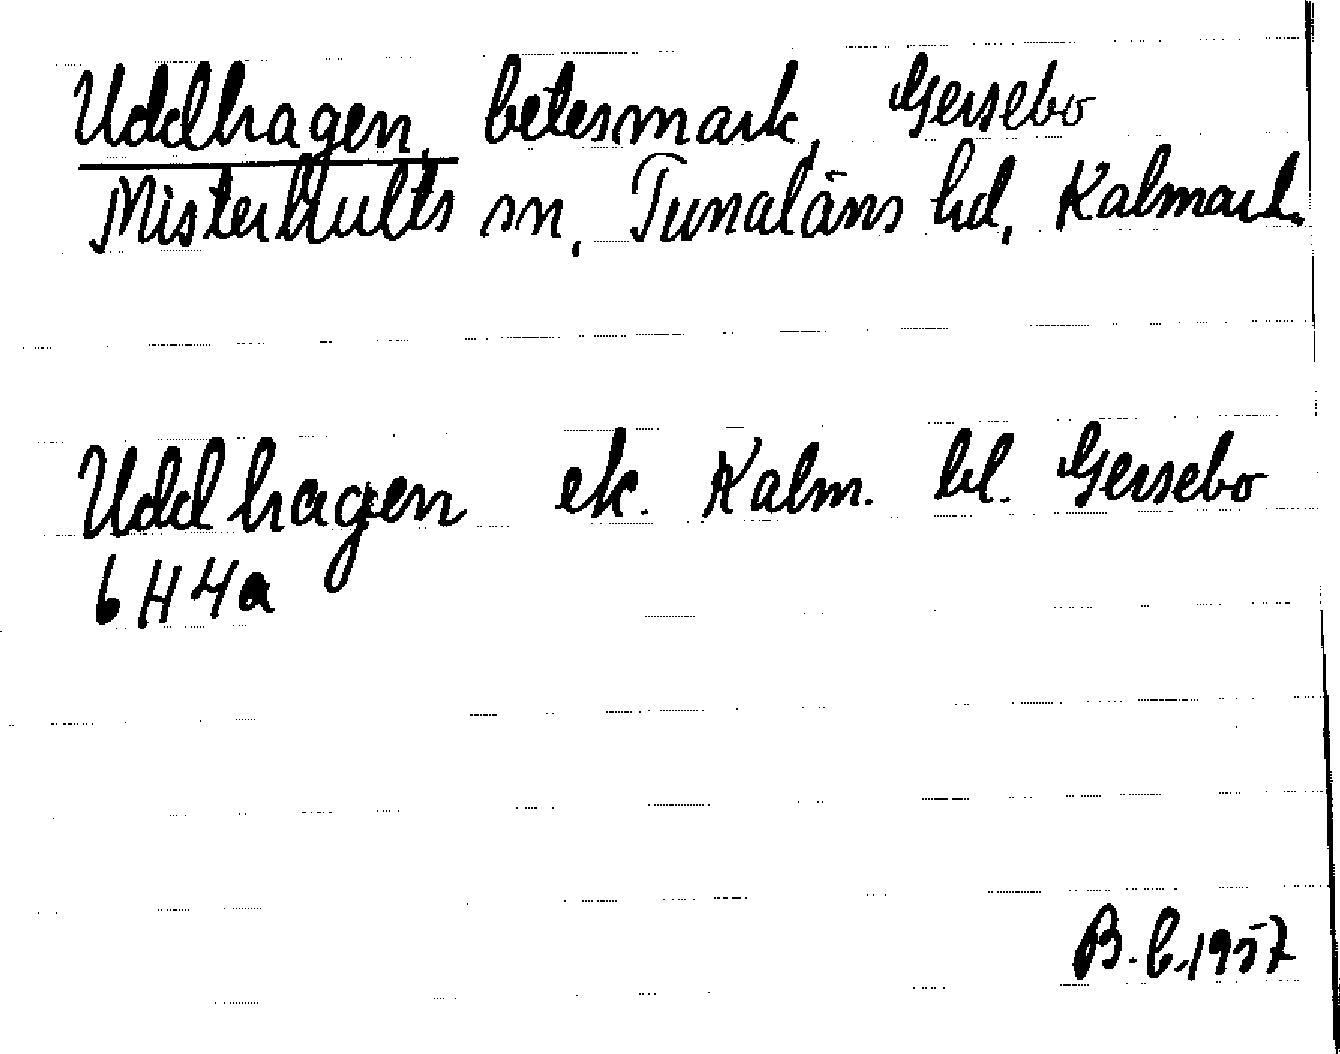 Uddhagen, betesmark, Gersebo
Misterhults sn, Tunaläns hd, Kalmar l.
Uddhagen ek. Kalm. bl. Gersebo
6 H 4a
B. L. 1957